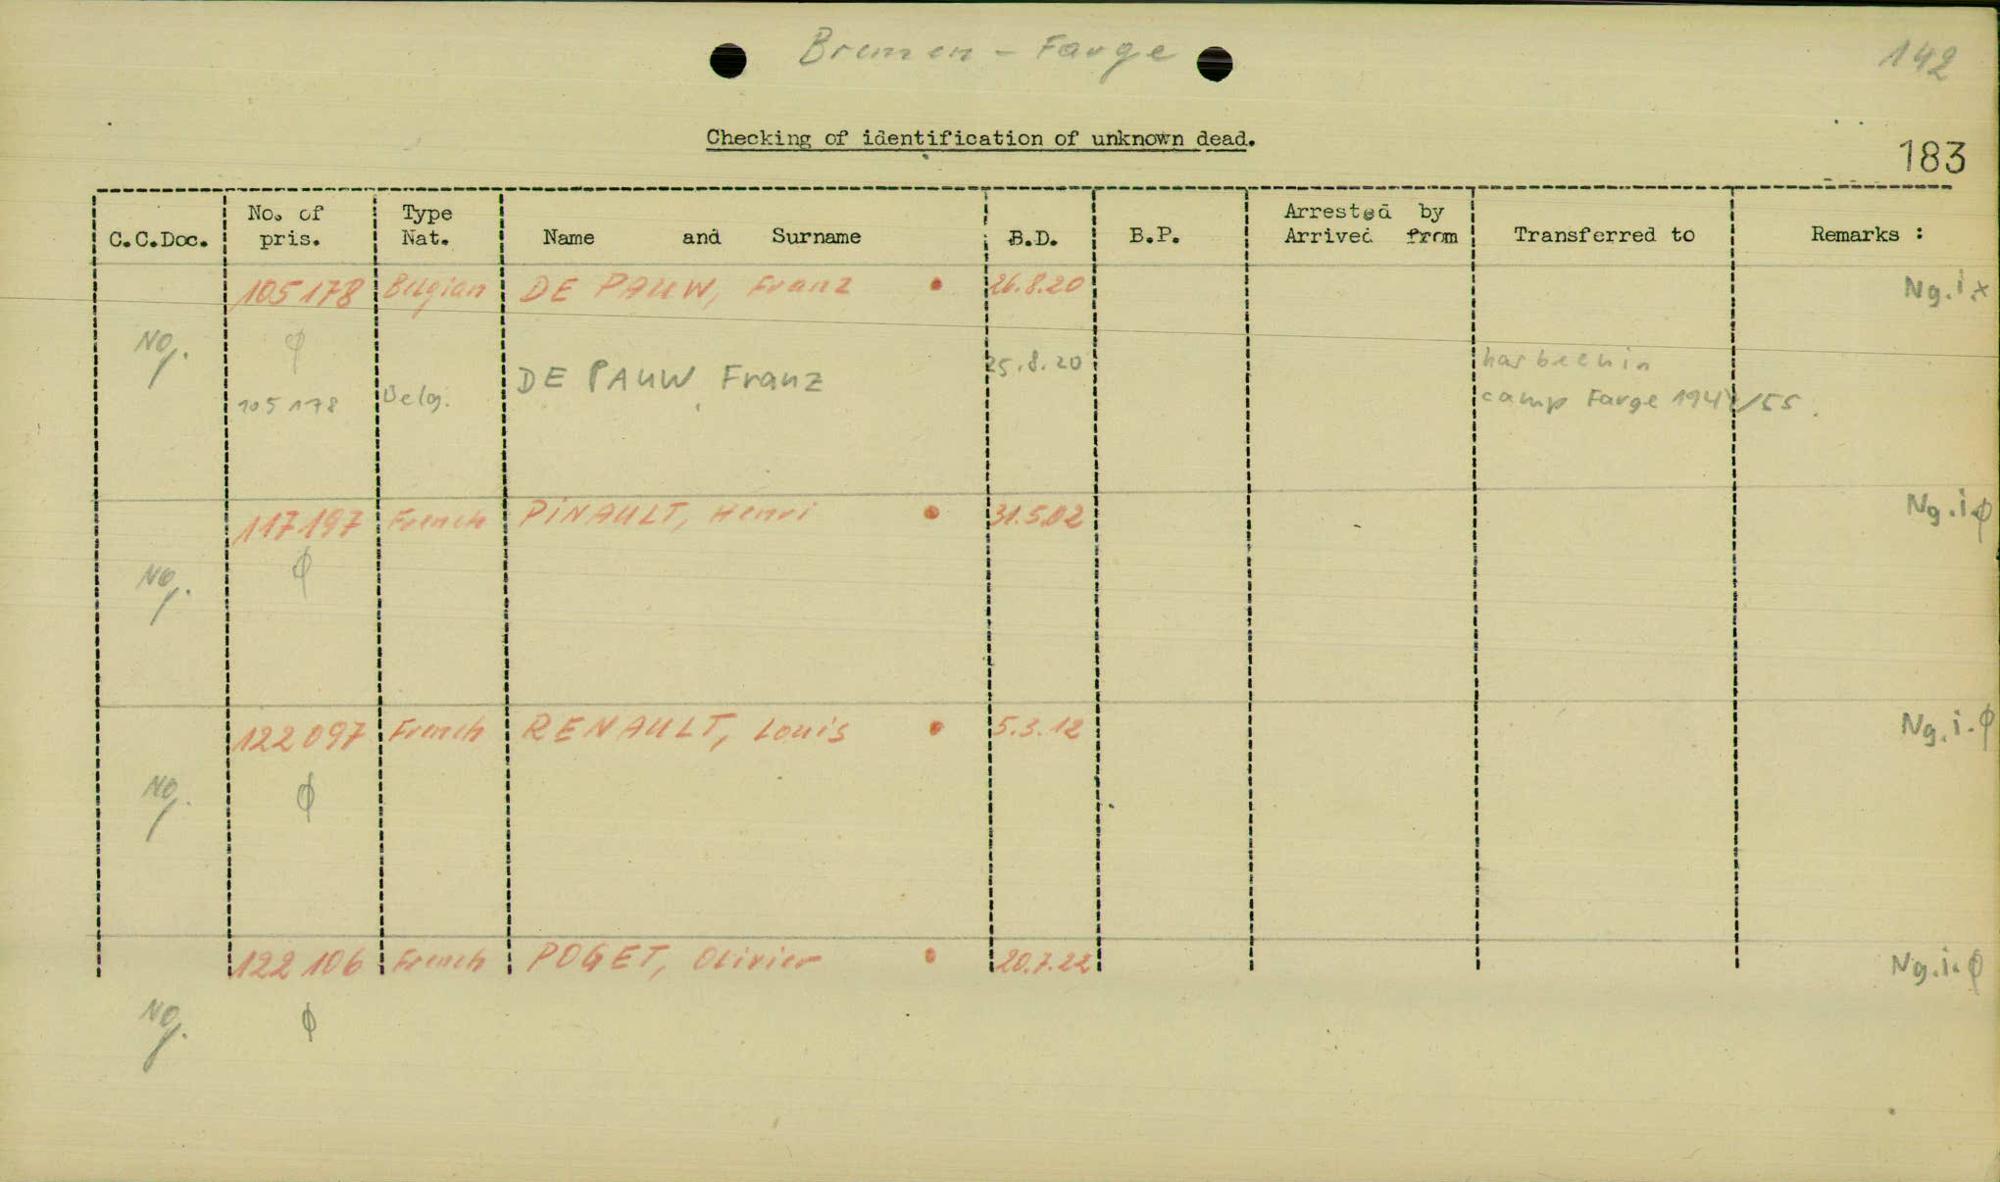 Bremen - Farge
142
Checking of identification of unknown dead.
183
C.C.Doc. No. of pris. Type Nat. Name and Surname B.D. B.P. Arrested by Arrived from Transferred to Remarks :
105178 Belgian DE PAUW, Franz • 26.8.20 Ng.i.x
Ng. φ
105178 Belg. DE PAUW, Franz 25.8.20 has been in
camp Farge 194 /55.
117197 French PINAULT, Henri • 31.5.02 Ng.i.φ
Ng. φ
122097 French RENAULT, Louis • 5.3.12 Ng.i.φ
Ng. φ
122106 French POGET, Olivier • 20.7.22 Ng.i.φ
Ng. φ